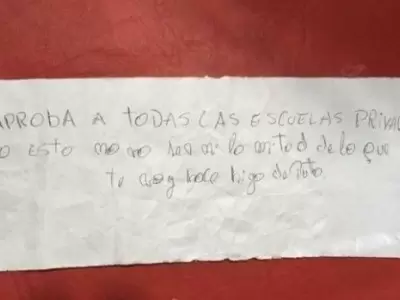 APROBA A TODAS LAS ESCUELAS PRIVA
O ESTO no será ni la mitad de lo que
te voy hace hijo de puto